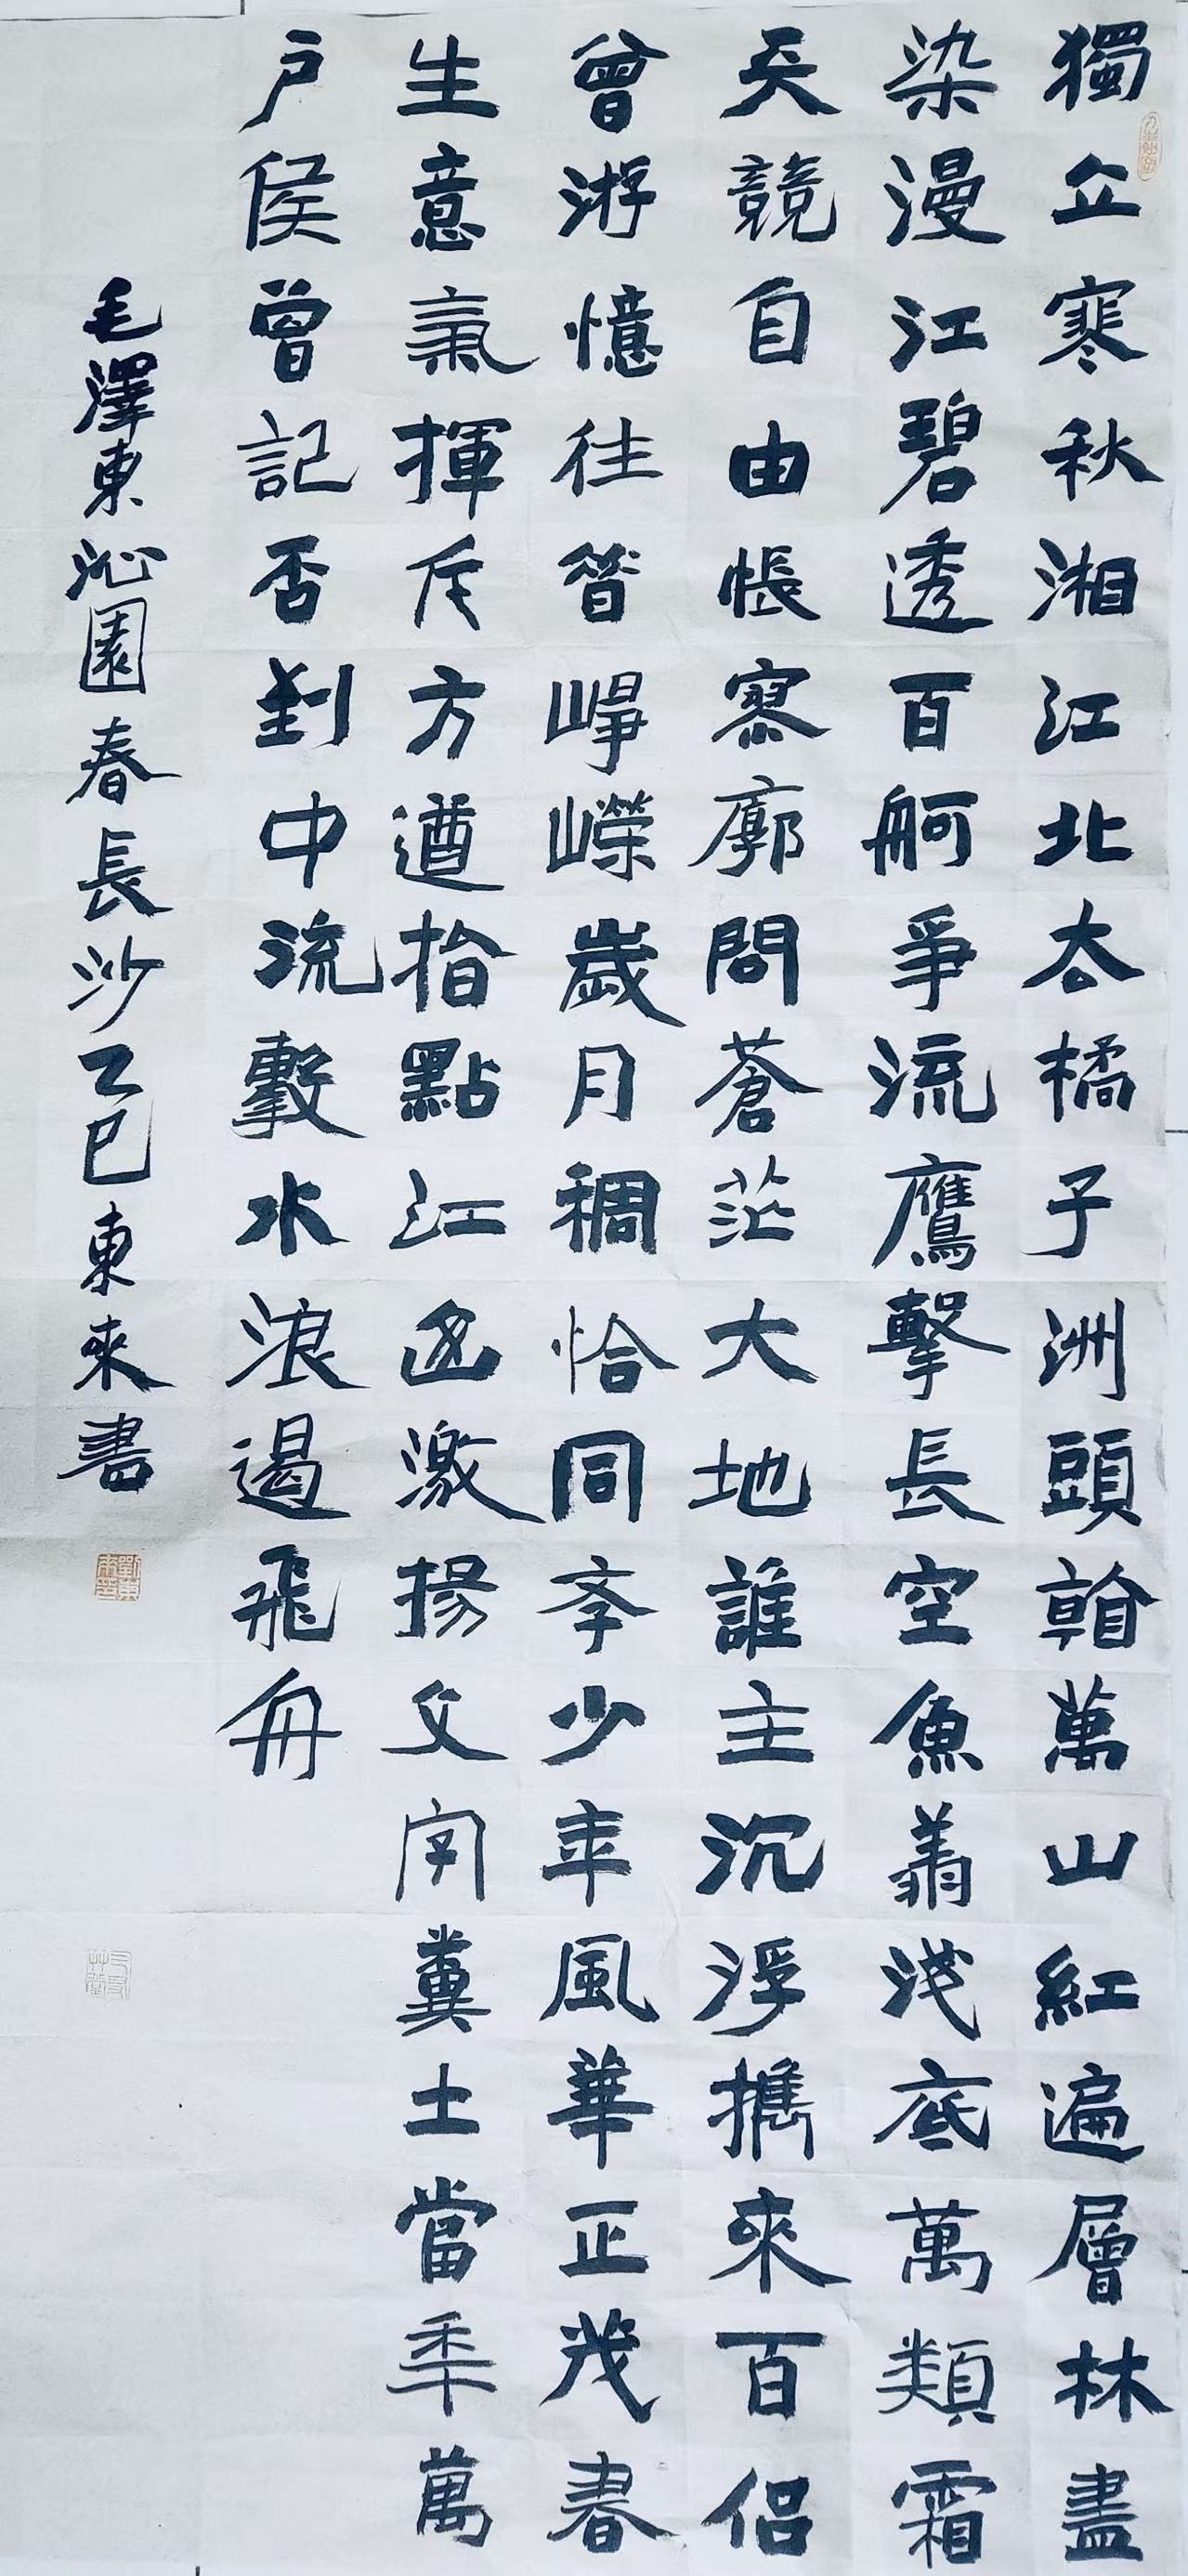 獨立寒秋湘江北去橘子洲頭看萬山紅遍層林盡
染漫江碧透百舸爭流鷹擊長空魚翔淺底萬類霜
天競自由悵寥廓問蒼茫大地誰主沉浮攜來百侶
曾游憶往昔崢嶸歲月稠恰同學少年風華正茂春
生意氣揮斥方遒指點江山激揚文字糞土當年萬
户侯曾記否到中流擊水浪遏飛舟
毛澤東沁園春長沙乙巳東來書
劉東來印